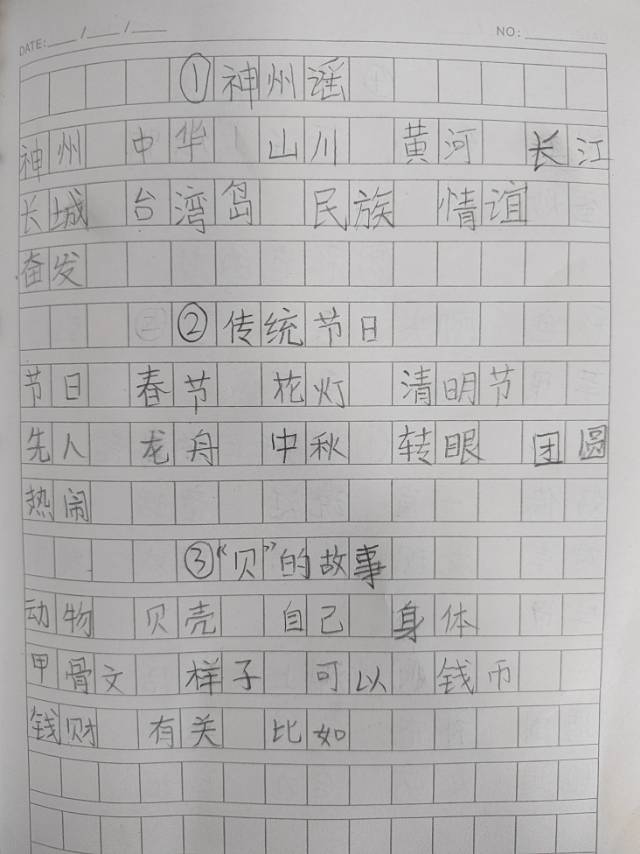 DATE: / /
NO:
①神州谣
神州 中华 山川 黄河 长江
长城 台湾岛 民族 情谊
奋发
②传统节日
节日 春节 花灯 清明节
先人 龙舟 中秋 转眼 团圆
热闹
③“贝”的故事
动物 贝壳 自己 身体
甲骨文 样子 可以 钱币
钱财 有关 比如